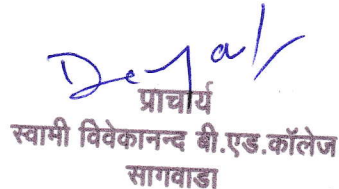 प्राचार्य
स्वामी विवेकानन्द बी.एड.कॉलेज
सागवाडा